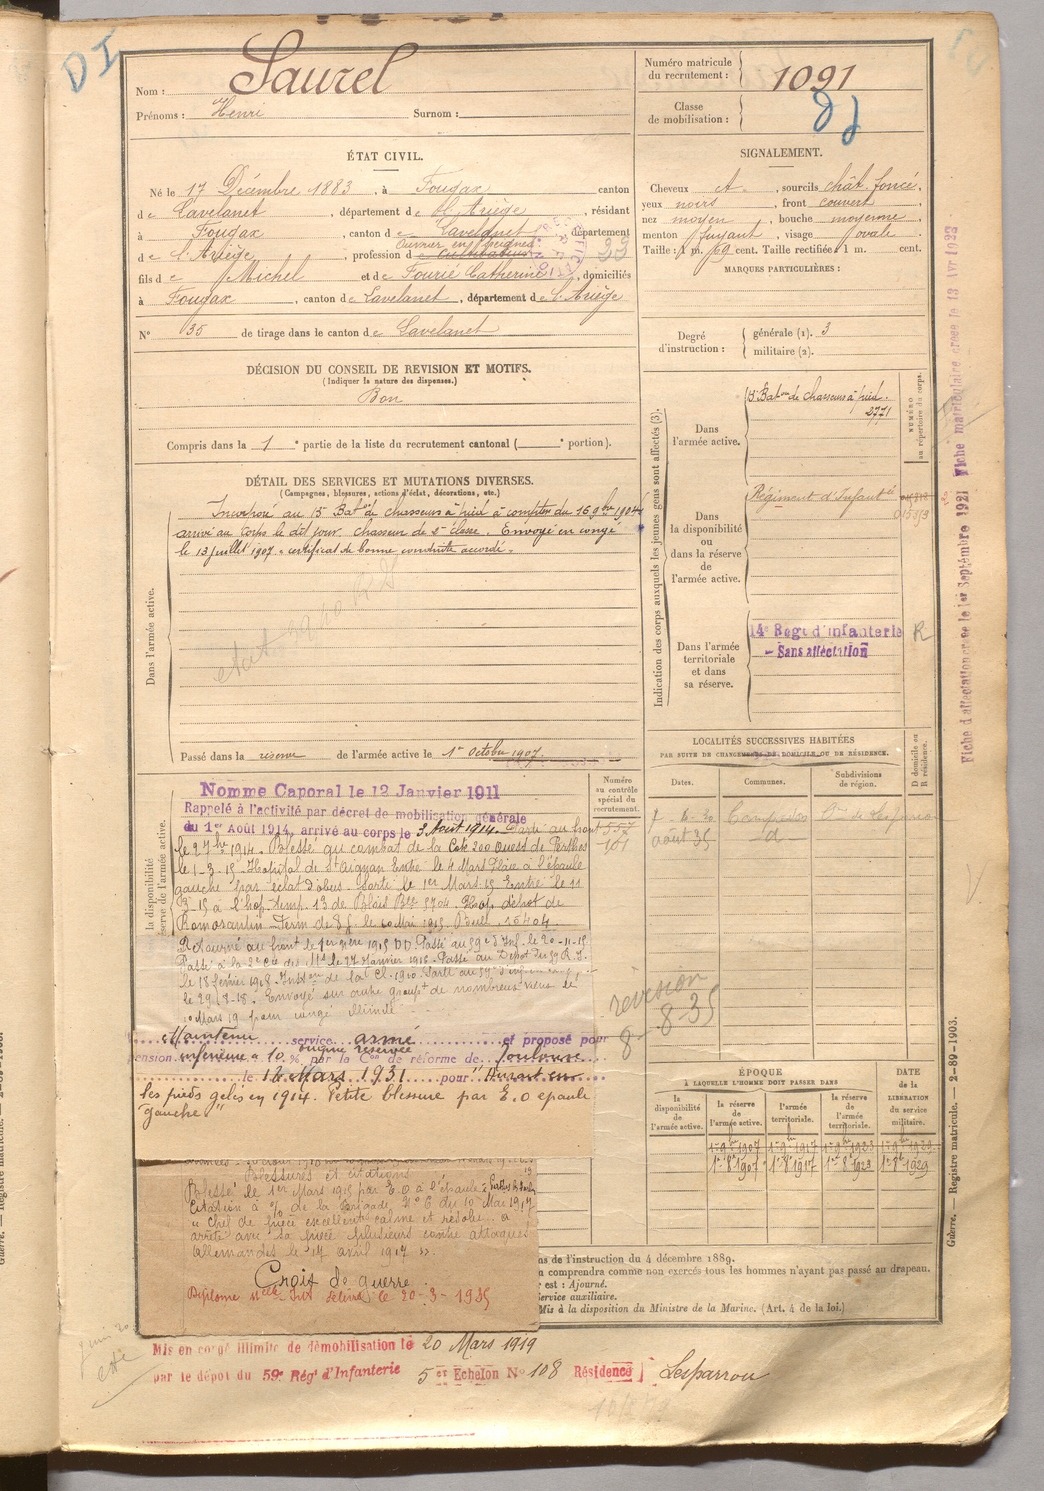 DI
Nom : Saurel
Prénoms : Henri Surnom :
Numéro matricule du recrutement : 1091
Classe de mobilisation :
ÉTAT CIVIL.
Né le 17 Décembre 1883, à Fougax canton
de Lavelanet, département de l'Ariège, résidant
à Fougax, canton de Lavelanet département
Ouvrier en peignes
de l'Ariège, profession de cultivateur
fils de Michel et de Fourié Catherine, domiciliés
à Fougax, canton de Lavelanet, département de l'Ariège
N° 35 de tirage dans le canton de Lavelanet
SIGNALEMENT.
Cheveux , sourcils chât. foncé,
yeux noirs, front couvert
nez moyen, bouche moyenne
menton fuyant, visage ovale.
Taille : 1 m. 69 cent. Taille rectifiée 1 m. cent.
MARQUES PARTICULIÈRES :
Degré d'instruction : générale (1). 3
militaire (2).
DÉCISION DU CONSEIL DE REVISION ET MOTIFS.
(Indiquer la nature des dispenses.)
Bon
Compris dans la 1e partie de la liste du recrutement cantonal ( e portion).
DÉTAIL DES SERVICES ET MUTATIONS DIVERSES.
(Campagnes, blessures, actions d'éclat, décorations, etc.)
Dans l'armée active.
Incorporé au 15e Baton de chasseurs à pied à compter du 16 9bre 1904
arrivé au corps le dit jour. Chasseur de 2e classe. Envoyé en congé
le 13 juillet 1907. certificat de bonne conduite accordé.
Passé dans la réserve de l'armée active le 1er Octobre 1907
Indication des corps auxquels les jeunes gens sont affectés (3).
NUMÉRO au répertoire du corps.
Dans l'armée active.
15e Baton de chasseurs à pied.
2771
Dans la disponibilité ou dans la réserve de l'armée active.
Régiment d'Infantie
Dans l'armée territoriale et dans sa réserve.
14e Regt d'Infanterie R
- Sans affectation
Fiche d'affectation créée le 1er Septembre 1921
Fiche matriculaire créée le 13 Avr 1922
LOCALITÉS SUCCESSIVES HABITÉES
PAR SUITE DE CHANGEMENTS DE DOMICILE OU DE RÉSIDENCE.
Dates.
Communes.
Subdivisions de région.
D domicile ou R résidence.
août 35 d
Numéro au contrôle spécial du recrutement.
557
101
la disponibilité
réserve de l'armée active.
Nommé Caporal le 12 Janvier 1911
Rappelé à l'activité par décret de mobilisation générale
du 1er Août 1914, arrivé au corps le 3 Août 1914. Parti au front
le 27 bre 1914. Blessé au combat de la Cote 200 Ouest de Perthes
le 1-3-15. Hôpital de St Aignan Entré le 4 Mars Plaie à l'épaule
gauche par éclat d'obus. Sorti le 1er Mars 15 Entré le 11
3-15 à l'hop. temp. 13 de Blois Bon 5704. dépôt de
Romorantin. Perm de 8 j. le 10 Mai 1915. 15404.
Retourné au front le 1er 1915 DD. Passé au 59e d'Inf. le 20-11-15
Passé à la 2e Cie des Mses le 27 Janvier 1916. Passé au Dépôt du 59 R.I.
le 18 février 1918. de la Cl. 1910.
le 29 8-18. Envoyé sur ordre groupt de le
Mars 19 pour congé illimité
Maintenu service armé et proposé pour
pension inférieure à 10 % par la Con de réforme de Toulouse
le 12 Mars 1931 pour
les pieds gelés en 1914. Petite blessure par E. O épaule
gauche"
révision
8-8-35
Blessures et citations
Blessé le 1er Mars 1915 par E O à l'épaule à Perthes
Citation à l'o/ de la Brigade N° 6 du 10 Mai 1917
" Chef de pièce excellent calme et résolu. a
arrêté avec sa pièce plusieurs contre attaques
allemandes le 17 avril 1917 »
Croix de guerre.
le 20-3-1935
ÉPOQUE
À LAQUELLE L'HOMME DOIT PASSER DANS
la disponibilité de l'armée active.
la réserve de l'armée active.
l'armée territoriale.
la réserve de l'armée territoriale.
DATE de la LIBÉRATION du service militaire.
1er 9bre 1907 1er 9bre 1917 1er 9bre 1923 1er 9bre 1929
1er 8bre 1907 1er 8bre 1917 1er 8bre 1923 1er 8bre 1929
ns de l'instruction du 4 décembre 1889.
n comprendra comme non exercés tous les hommes n'ayant pas passé au drapeau.
r est : Ajourné.
Service auxiliaire.
Mis à la disposition du Ministre de la Marine. (Art. 4 de la loi.)
Guerre. — Registre matricule. — 2-89-1903.
Mis en congé illimité de démobilisation le 20 Mars 1919
par le dépôt du 59e Régt d'Infanterie 5 er Echelon N° 108 Résidence Lesparrou